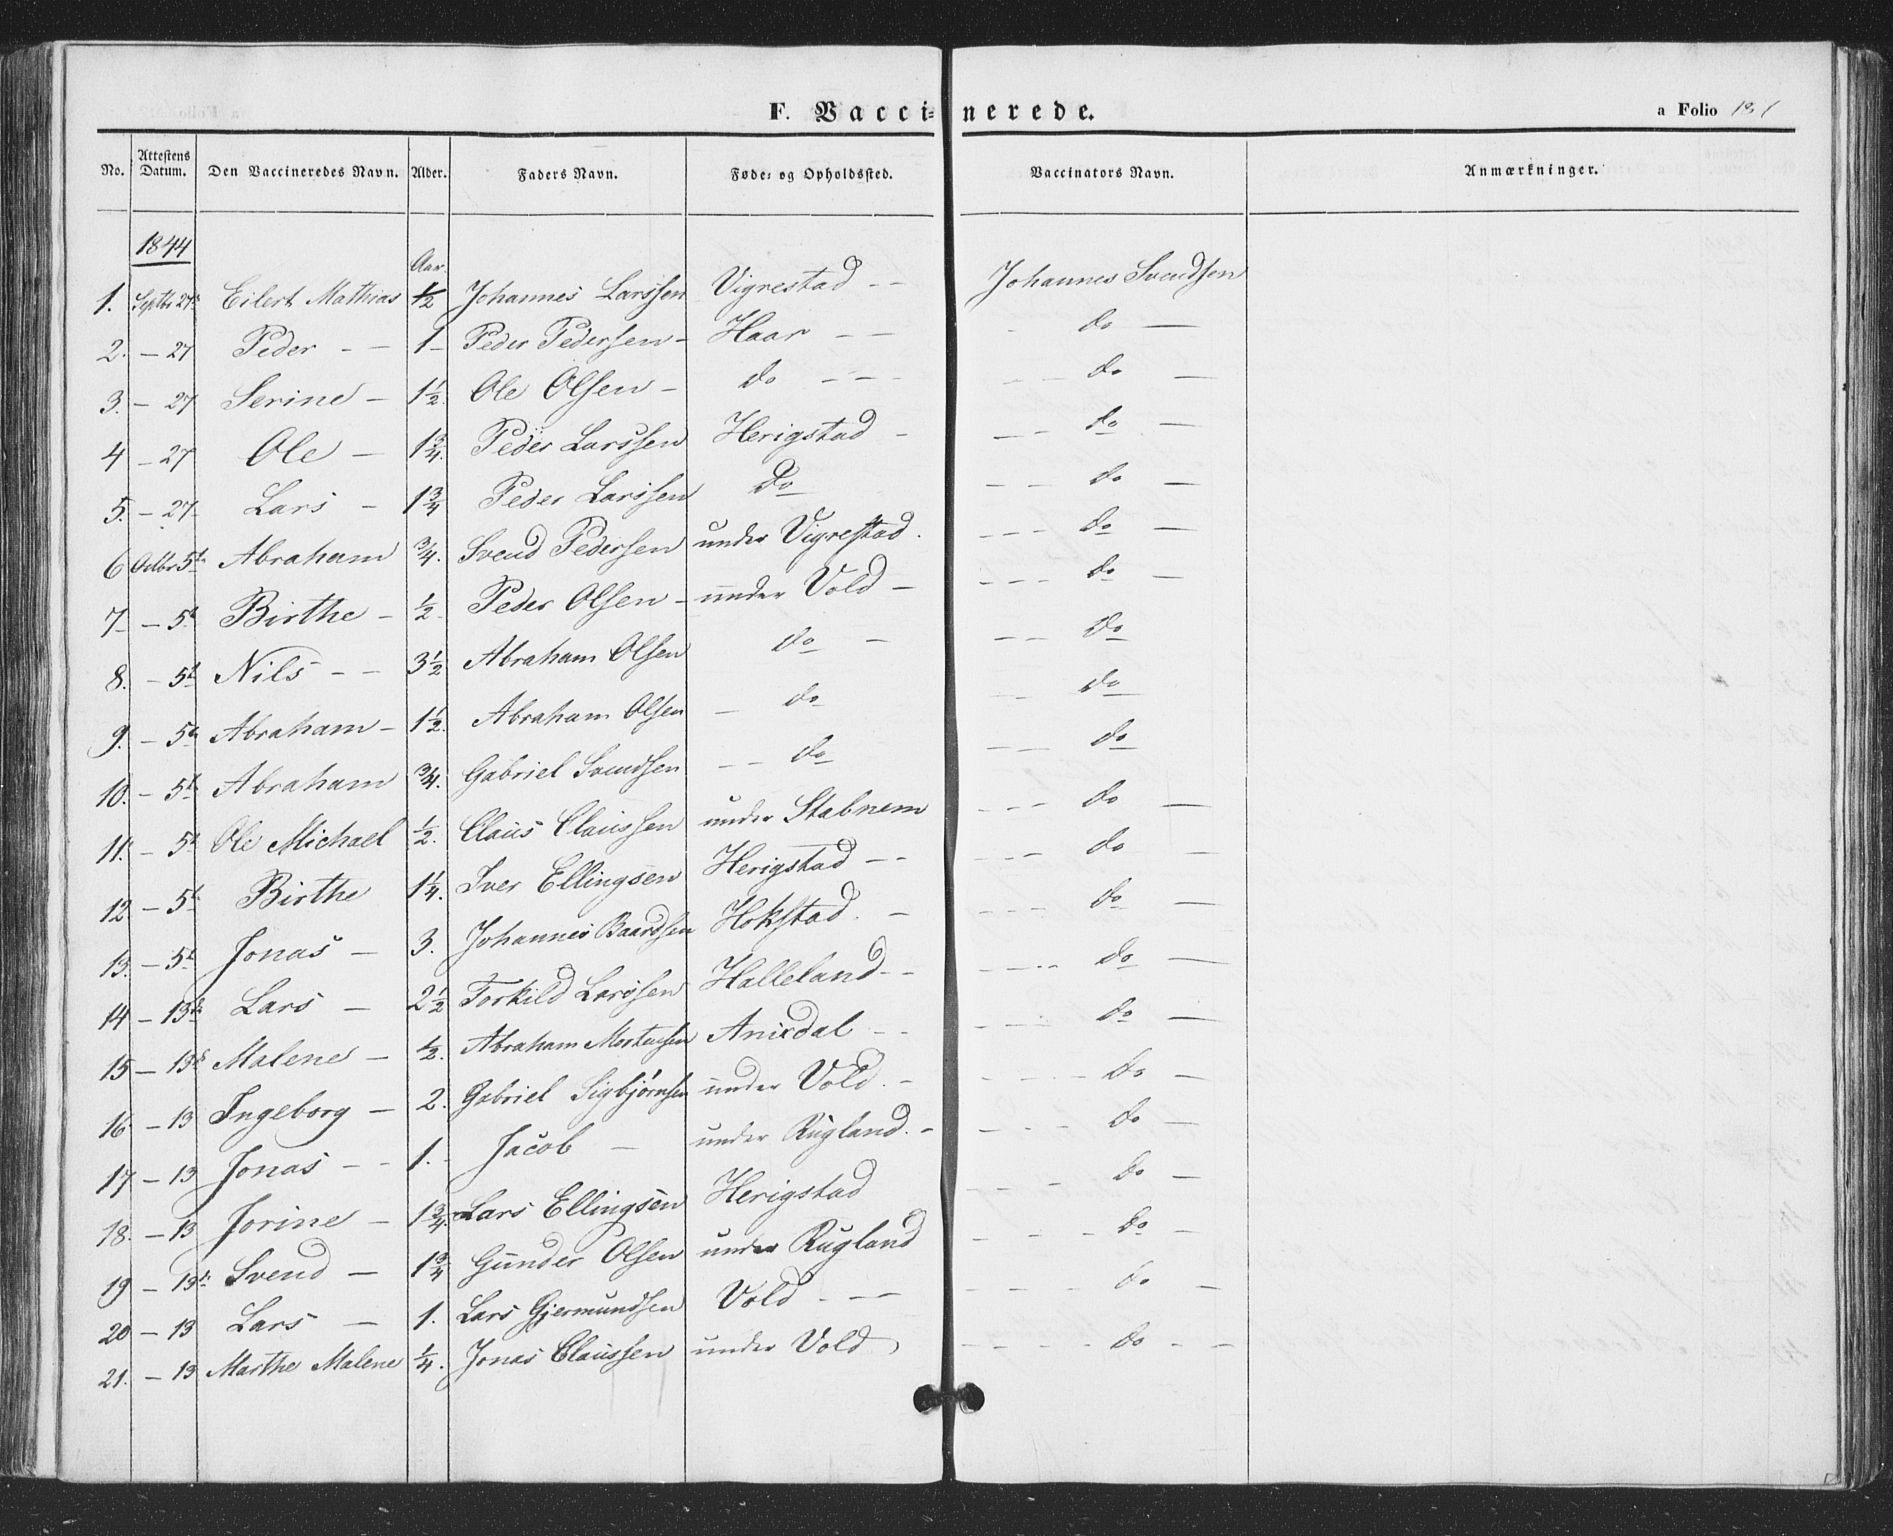 F. Vaccinerede.
a Folio 181
No. Attestens Datum. Den Vaccineredes Navn. Alder. Faders Navn. Føde- og Opholdssted. Vaccinators Navn. Anmærkninger.
1844
Aar.
1. Septbr 27 Eilert Mathias 1/2 Johannes Larssen Vigrestad -- Johannes Svendsen
2. - 27 Peder -- 1 - Peder Pedersen - Haar -- - do -
3. - 27 Serine - 1 1/2 Ole Olsen - do --- -- do -
4 - 27 Ole - 1 3/4. Peder Larssen Herigstad - -- do -
5. - 27 Lars - 1 3/4 Peder Larssen do -- do -
6 Octbr 5t Abraham 3/4. Svend Pedersen under Vigrestad. --- do -
7 - 5t Birthe - 1/2 Peder Olsen - under Vold - --- do -
8. - 5t Nils -- 3 1/2 Abraham Olsen do - -- do
9. - 5t Abraham - 1 1/2. Abraham Olsen - do -- do
10. - 5t Abraham 3/4. Gabriel Svendsen -- do -- do
11. - 5t Ole Michael 1/2. Claus Claussen under Stabnem --- do -
12 - 5t Birthe 1 1/4. Iver Ellingsen Herigstad -- --- do -
13. - 5t Jonas - 3. Johannes Baardsen Hokstad. - --- do -
14 - 13d Lars - 2 1/2 Torkild Larssen Halleland -- ---- do -
15 - 13d Malene - 1/2. Abraham Mortensen Anisdal -- ---- do -
16 - 13 Ingeborg - 2. Gabriel Sigbjørnsen under Vold. - ---- do -
17 - 13 Jonas -- 1. - Jacob - under Rugland. - ---- do -
18. - 13 Jorine - 1 3/4 Lars Ellingsen Herigstad --- do -
19 - 13d Svend - 1 3/4 Gunder Olsen under Rugland ---- do -
20 - 13 Lars - 1. Lars Gjermundsen Vold --- ---- do -
21. - 13 Marthe Malene 1/4. Jonas Claussen under Vold ---- do --